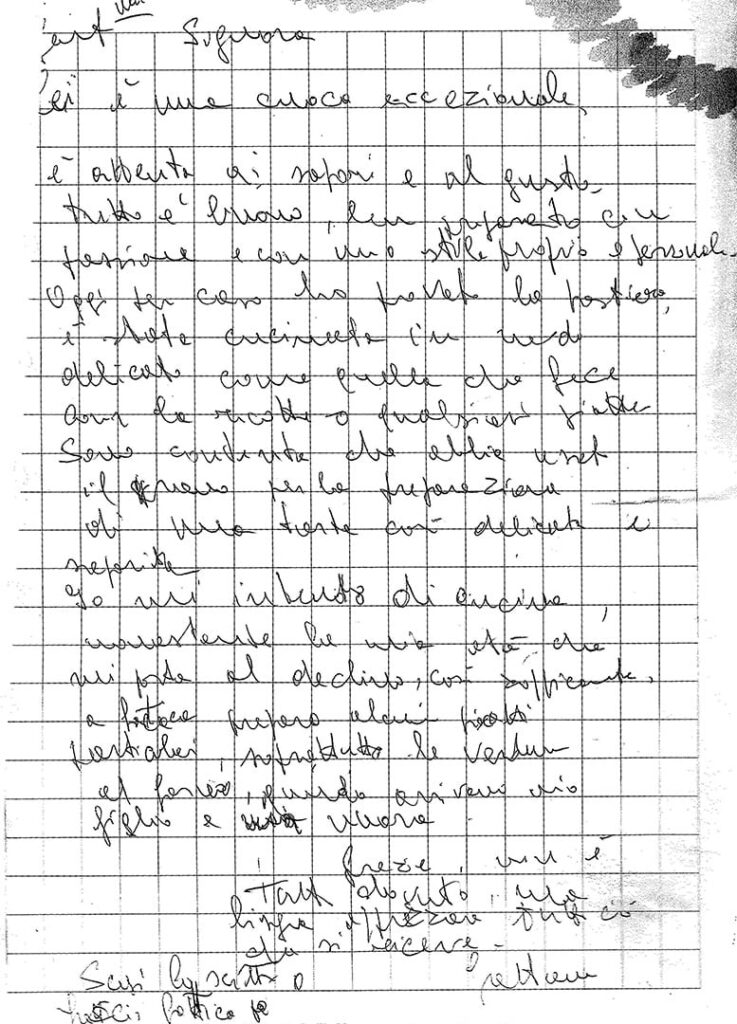 Signora
Lei è una cuoca eccezionale,
è attenta ai sapori e al gusto
tutto è buono, ben preparato con
passione e con uno stile proprio e personale.
Oggi per caso ho provato la pastiera,
è stata cucinata in modo
delicato come quella che fece
con la ricotta o qualsiasi
Sono contenta che abbia
il grano per la preparazione
di una torta così delicata e
saporita
Io mi intendo di cucina,
nonostante la mia età che
mi porta al declino, così
a preparo alcuni piatti
pastiera, soprattutto le verdure
al forno, quando arrivano mio
figlio e mia nuora
Grazie, non è
dovuto, ma
bisogna apprezzare tutto ciò
che si riceve.
Scusi lo scritto